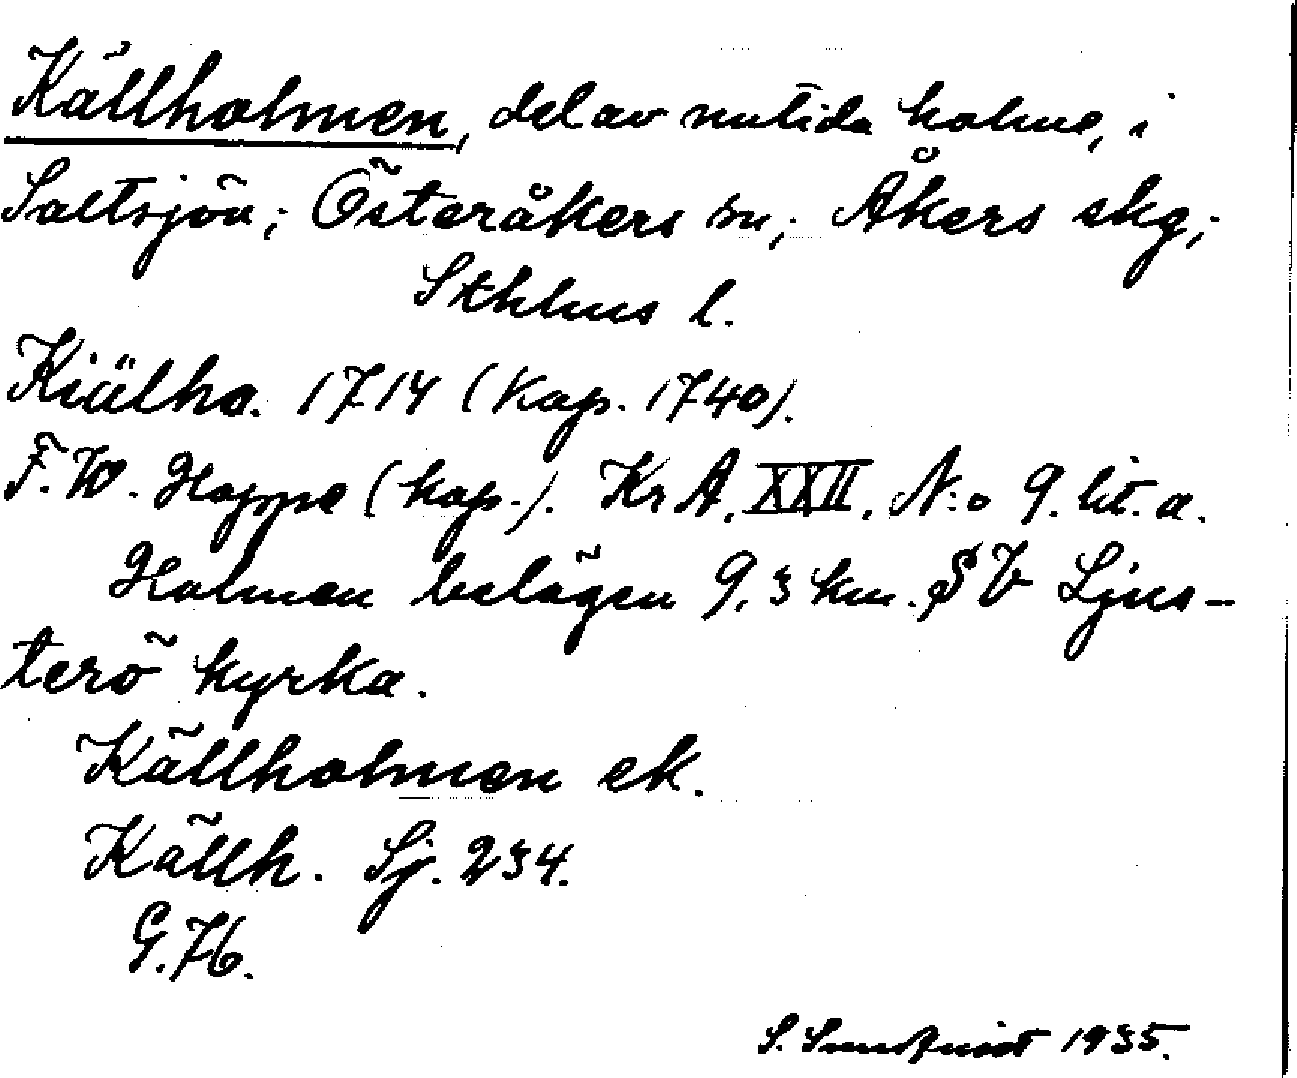 Källholmen, del av nutida holme, i
Saltsjön; Österåkers sn; Åkers skg;
Sthlms l.
Kiälho. 1714 (kop. 1740).
F. W. Hoppe (kop.). KrA. XXII. N:o 9. lit. a.
Holmen belägen 9,3 km. SV Ljus-
terö kyrka.
Källholmen ek.
Källh. Sj. 234.
G. 76.
S. Sundqvist 1935.